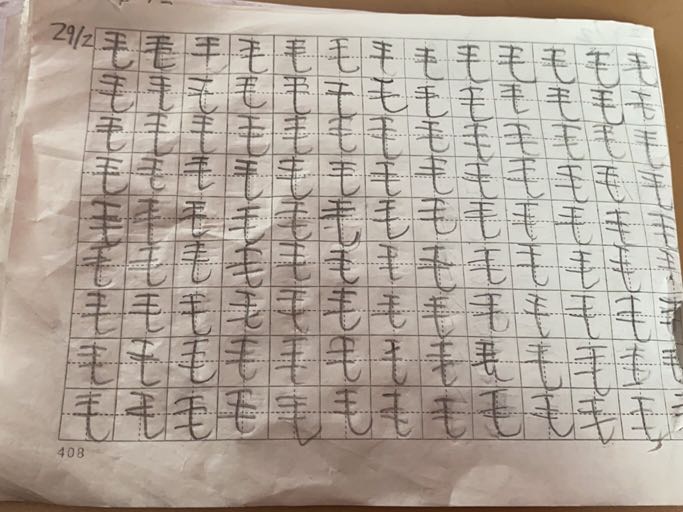 29/2 毛毛毛毛毛毛毛毛毛毛毛毛毛
毛毛毛毛毛毛毛毛毛毛毛毛毛
毛毛毛毛毛毛毛毛毛毛毛毛毛
毛毛毛毛毛毛毛毛毛毛毛毛毛
毛毛毛毛毛毛毛毛毛毛毛毛毛
毛毛毛毛毛毛毛毛毛毛毛毛毛
毛毛毛毛毛毛毛毛毛毛毛毛
毛毛毛毛毛毛毛毛毛毛毛毛
毛毛毛毛毛毛毛毛毛毛毛毛
408